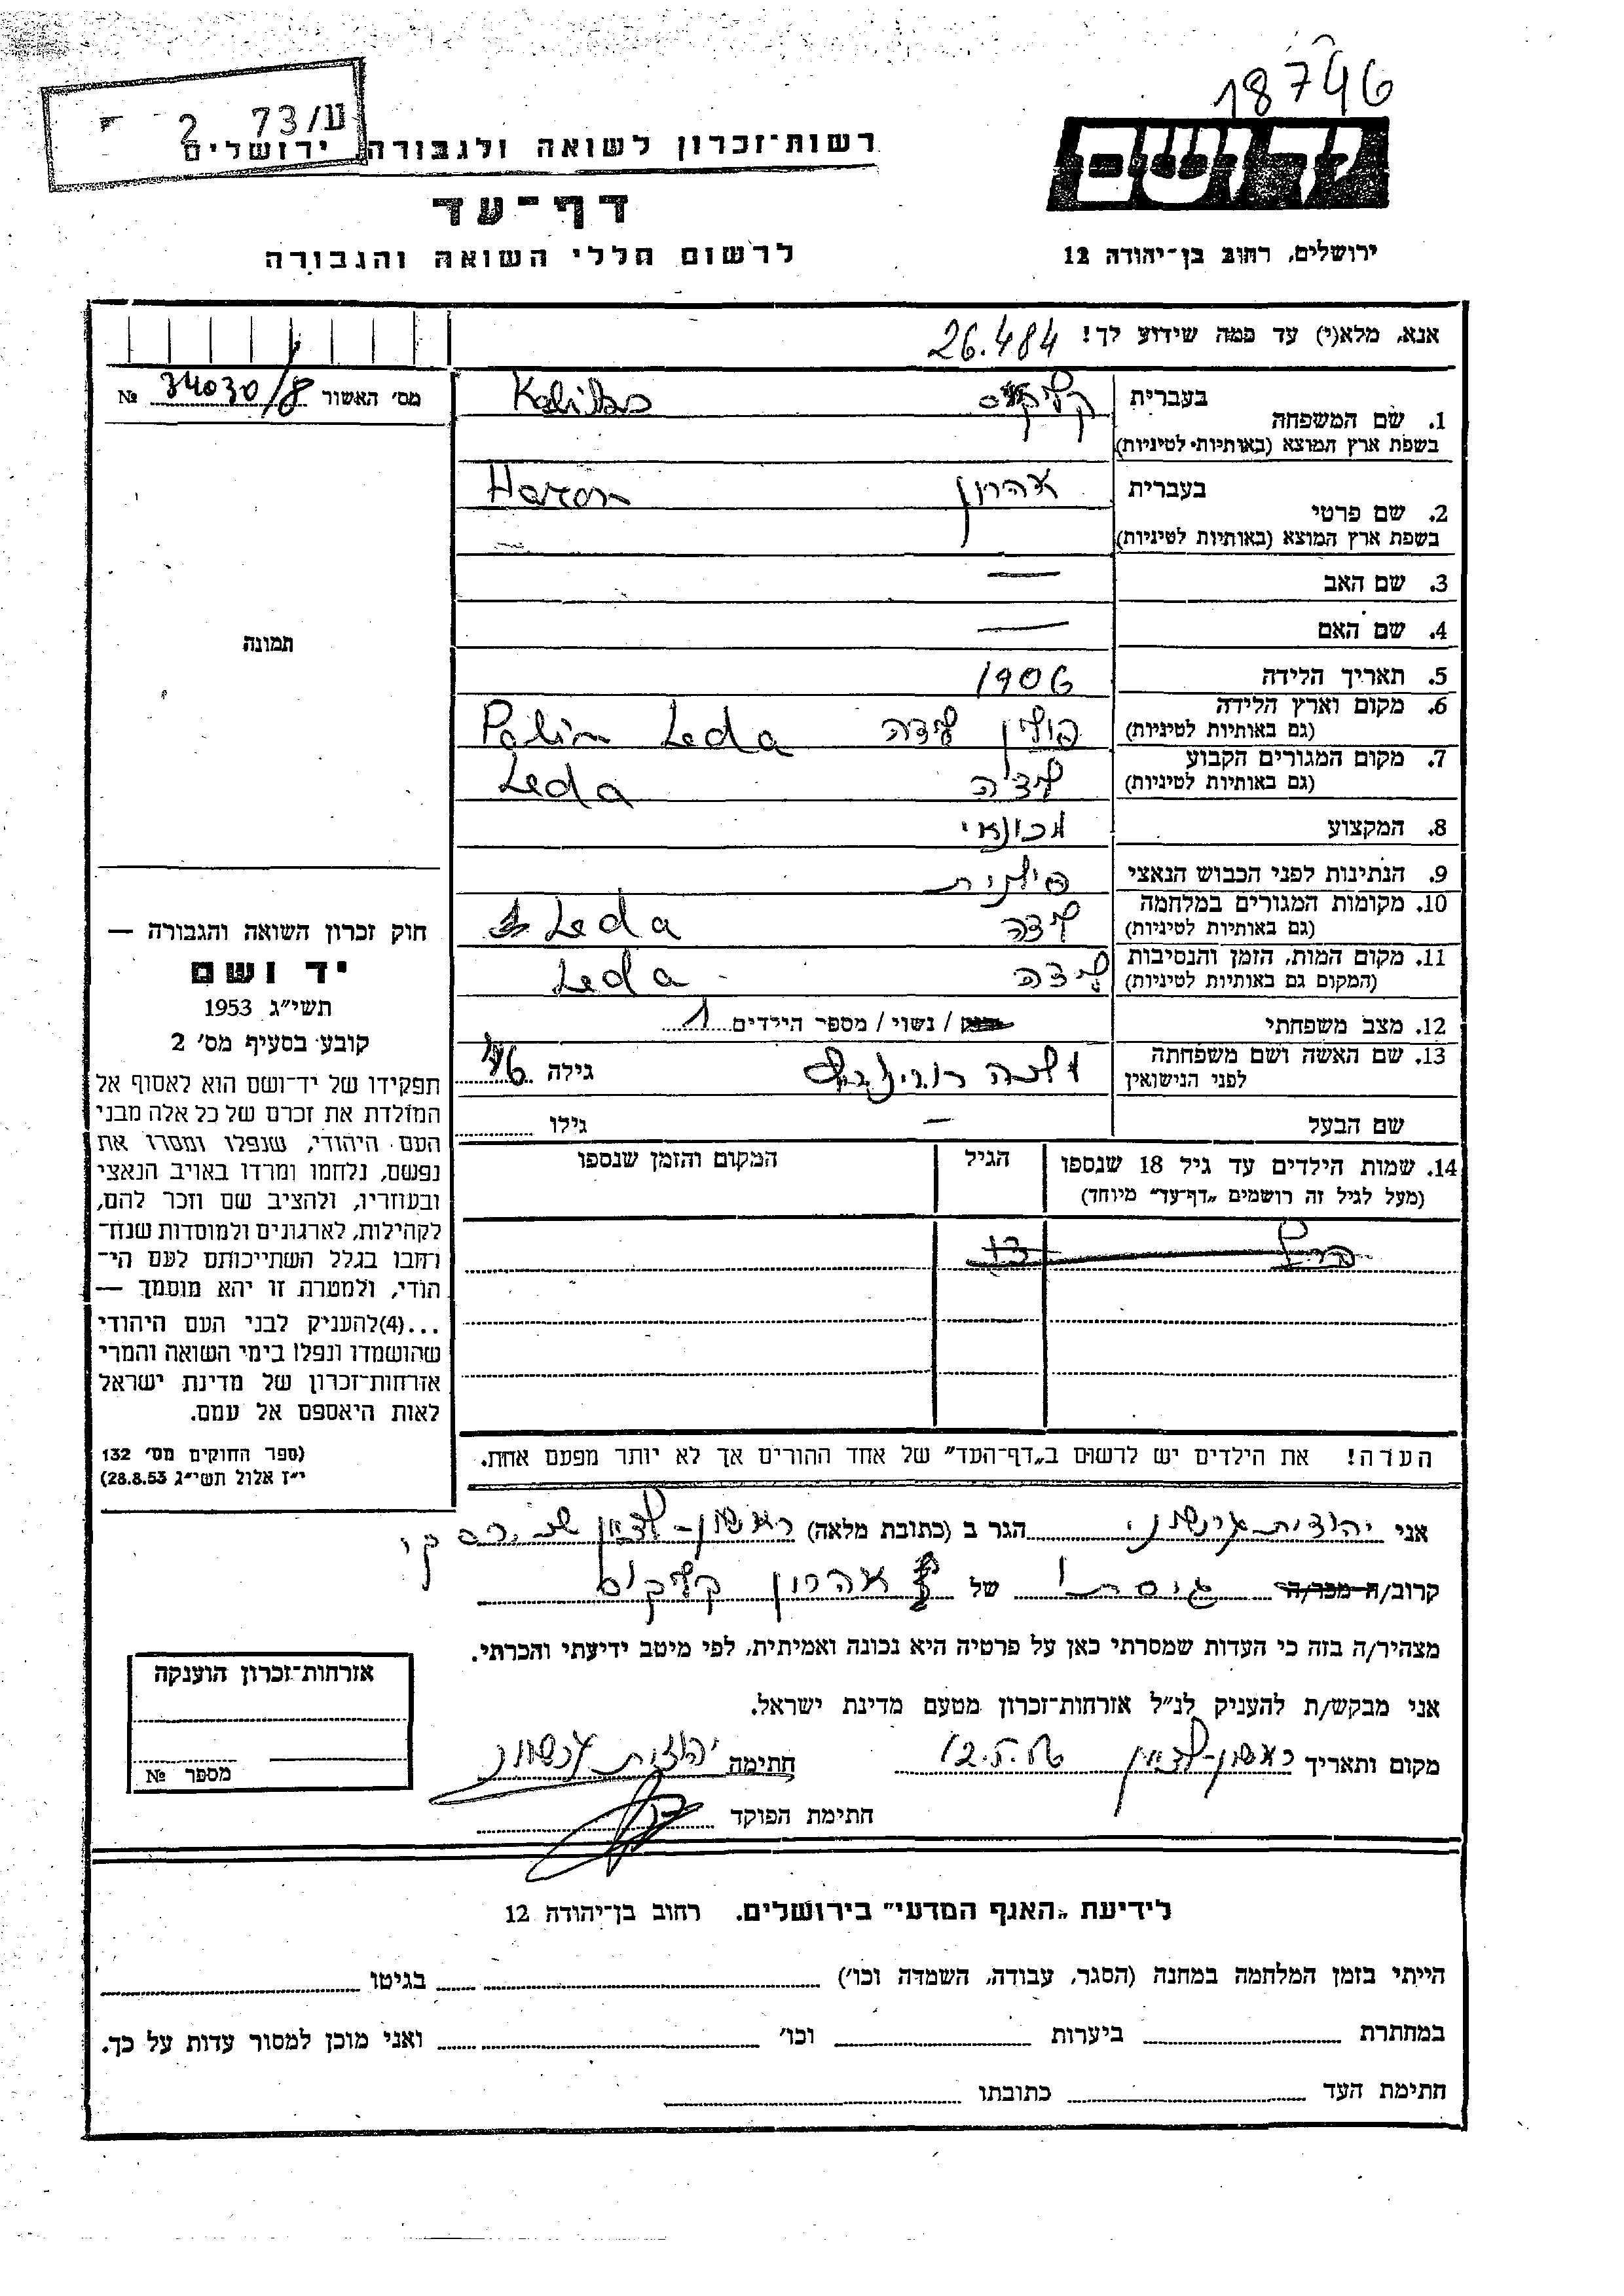 18746
ע/73 2
רשות־זכרון לשואה ולגבורה, ירושלים
יד ושם
דף־עד
לרשום חללי השואה והגבורה
ירושלים, רחוב בן־יהודה 12
אנא, מלא(י) עד כמה שידוע לך! 26.484
מס׳ האשור 34030/8 №
1. שם המשפחה
בעברית
בשפת ארץ המוצא (באותיות לטיניות)
2. שם פרטי
בעברית אהרון Haron
בשפת ארץ המוצא (באותיות לטיניות)
3. שם האב —
4. שם האם —
5. תאריך הלידה 1906
6. מקום וארץ הלידה פולין לידה Polin Leda
(גם באותיות לטיניות)
7. מקום המגורים הקבוע Leda
(גם באותיות לטיניות)
8. המקצוע
9. הנתינות לפני הכבוש הנאצי פולנית
10. מקומות המגורים במלחמה לידה Leda
(גם באותיות לטיניות)
11. מקום המות, הזמן והנסיבות לידה Leda
(המקום גם באותיות לטיניות)
12. מצב משפחתי / נשוי / מספר הילדים 1
13. שם האשה ושם משפחתה
לפני הנישואין
גילה
שם הבעל — גילו
14. שמות הילדים עד גיל 18 שנספו
(מעל לגיל זה רושמים „דף־עד״ מיוחד)
הגיל
המקום והזמן שנספו
הערה! את הילדים יש לרשום ב„דף־העד״ של אחד ההורים אך לא יותר מפעם אחת.
תמונה
חוק זכרון השואה והגבורה —
יד ושם
תשי״ג 1953
קובע בסעיף מס׳ 2
תפקידו של יד־ושם הוא לאסוף אל
המולדת את זכרם של כל אלה מבני
העם היהודי, שנפלו ומסרו את
נפשם, נלחמו ומרדו באויב הנאצי
ובעוזריו, ולהציב שם וזכר להם,
לקהילות, לארגונים ולמוסדות שנח־
רחבו בגלל השתייכותם לעם הי־
הודי, ולמטרה זו יהא מוסמך —
...(4)להעניק לבני העם היהודי
שהושמדו ונפלו בימי השואה והמרי
אזרחות־זכרון של מדינת ישראל
לאות היאספם אל עמם.
(ספר החוקים מס׳ 132
י״ז אלול תשי״ג 28.8.53)
אני יהודית הגר ב (כתובת מלאה) ראשון־לציון
קרוב/ה מכר/ה של אהרון
מצהיר/ה בזה כי העדות שמסרתי כאן על פרטיה היא נכונה ואמיתית, לפי מיטב ידיעתי והכרתי.
אני מבקש/ת להעניק לנ״ל אזרחות־זכרון מטעם מדינת ישראל.
מקום ותאריך ראשון־לציון חתימה יהודית
חתימת הפוקד
אזרחות־זכרון הוענקה
מספר №
לידיעת „האגף המדעי״ בירושלים. רחוב בן־יהודה 12
הייתי בזמן המלחמה במחנה (הסגר, עבודה, השמדה וכו׳) בגיטו
במחתרת ביערות וכו׳ ואני מוכן למסור עדות על כך.
חתימת העד כתובתו